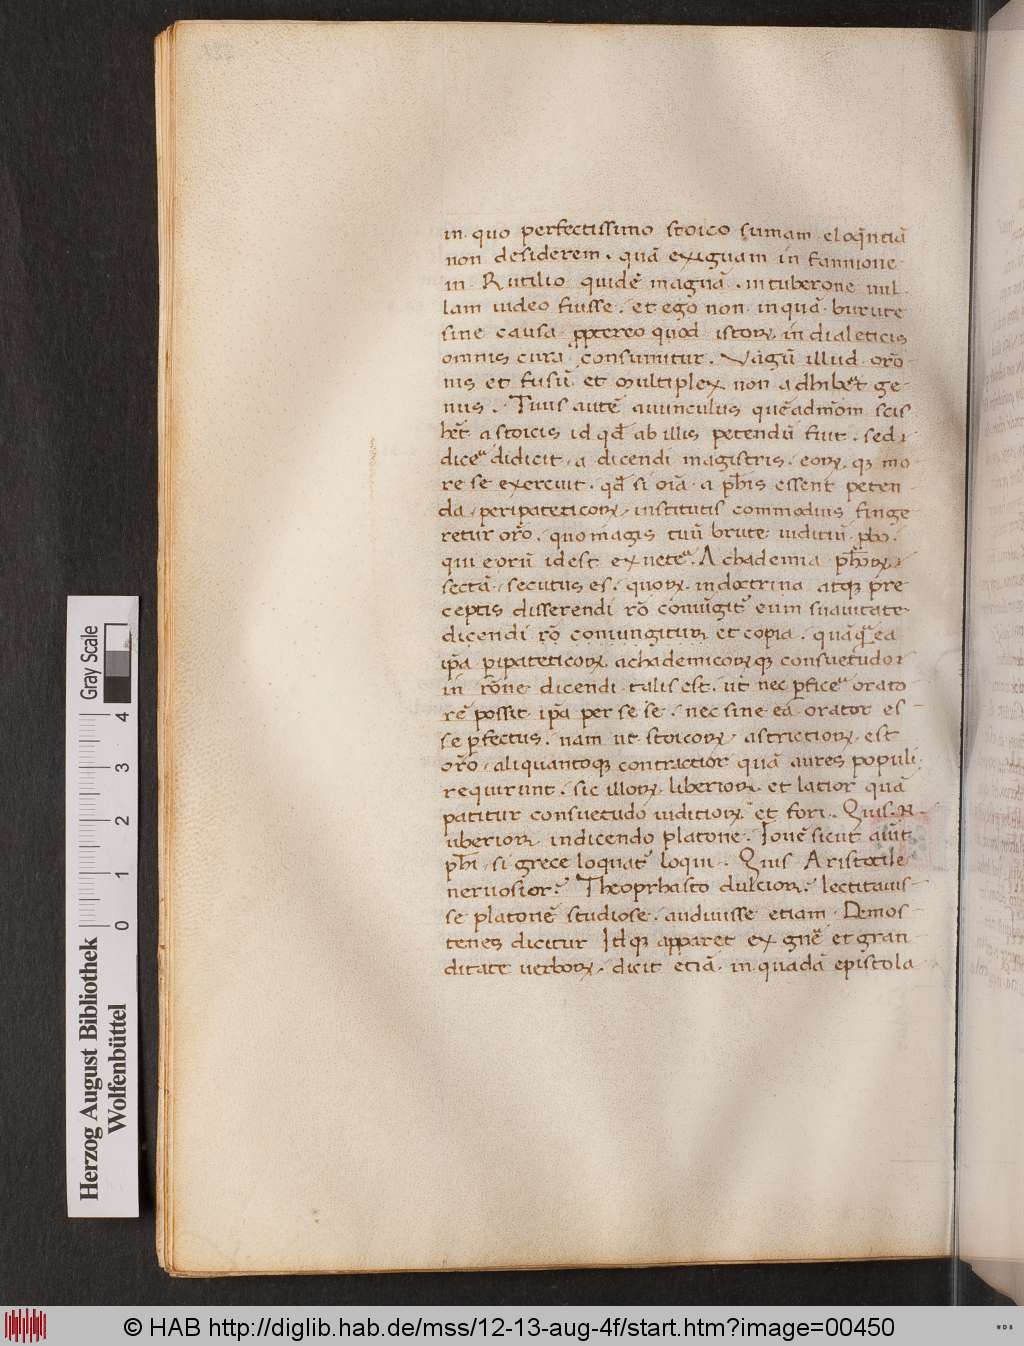 in quo perfectissimo stoico sumam eloq̃ntiã
non desiderem . quã exiguam in fannione
in Rutilio quidẽ magnã . in tuberone nul
lam uideo fuisse . et ego non inquã . burute
sine causa ꝓptereo quod istoꝝ in dialeticis
omnis cura consumitur . Vagũ illud orõ
nis et fusũ et multiplex non adhibet̃ ge
nus . Tuus autẽ auunculus quẽadmõm scis
hẽt a stoicis id qd̃ ab illis petendũ fuit . sed
dicẽ didicit a dicendi magistris . eoꝝ qȝ mo
re se exercuit . qd̃ si oĩa a ph̃is essent peten
da peripateticoꝝ institutis commodius finge
retur orõ . quo magis tuũ brute iuditiũ pbo .
qui eorũ idest ex uetẽ . Achademia ph̃oꝝ
sectã secutus es . quoꝝ in doctrina atqȝ pre
ceptis disserendi rõ coniũgit᷑ cum suauitate
dicendi rõ coniungitur et copia . quãq̃ ea
ip̃a pipateticoꝝ achademicoꝝqȝ consuetudo
in rõne dicendi talis est . ut nec pficẽ orato
rẽ possit ip̃a per se se . nec sine ea orator es
se pfectus . nam ut stoicoꝝ astrictioꝝ est
orõ aliquantoqȝ contractior quã aures populi
requirunt . sic illoꝝ liberioꝝ et latior quã
patitur consuetudo iuditioꝝ et fori . Quis
uberior in dicendo platone . Iouẽ sicut aiũt
ph̃i si grece loquat᷑ loqui . Quis Aristotile
neruosior ? Theoprhasto dulcior ? lectitauis
se platonẽ studiose . audiuisse etiam Demos
tenes dicitur Idqȝ apparet ex gñe et gran
ditate uerboꝝ . dicit etiã in quadã epistola
Gray Scale
0 1 2 3 4
Herzog August Bibliothek
Wolfenbüttel
© HAB http://diglib.hab.de/mss/12-13-aug-4f/start.htm?image=00450